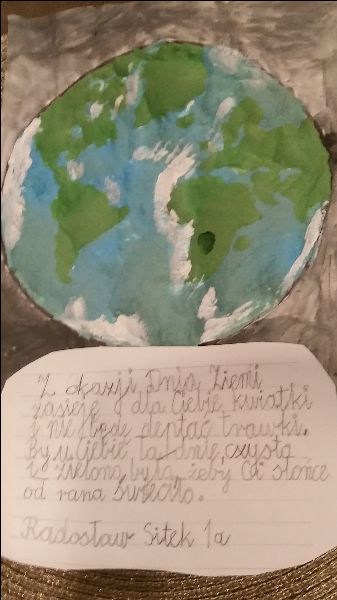 Z okazji Dnia Ziemi
zasieję dla Ciebie kwiatki
i nie będę deptać trawki.
By u Ciebie ładnie, czysto
i zielono było, żeby Ci słońce
od rana świeciło.
Radosław Sitek 1a